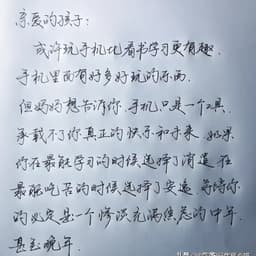 亲爱的孩子:
或许玩手机比看书学习更有趣.
手机里面有好多好玩的东西.
但妈妈想告诉你.手机只是一个工具.
承载不了你真正的快乐和未来 如果
你在最能学习的时候选择了消遣 在
最能吃苦的时候选择了安逸 等待你
的必定是一个惨淡充满焦急的中年.
甚至晚年.